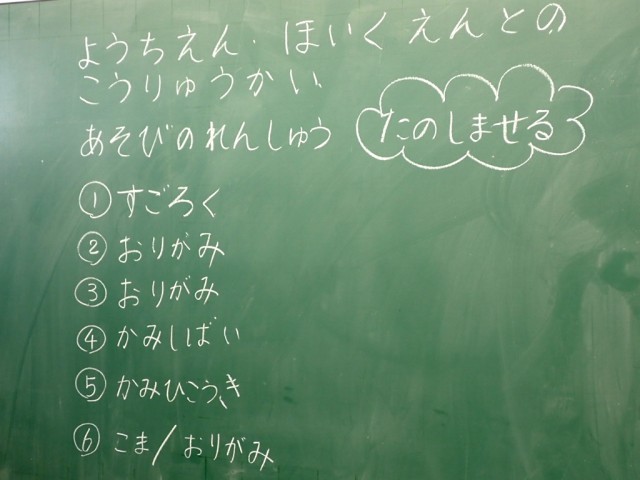 ようちえん・ほいくえんとの
こうりゅうかい
あそびのれんしゅう
たのしませる
① すごろく
② おりがみ
③ おりがみ
④ かみしばい
⑤ かみひこうき
⑥ こま/おりがみ